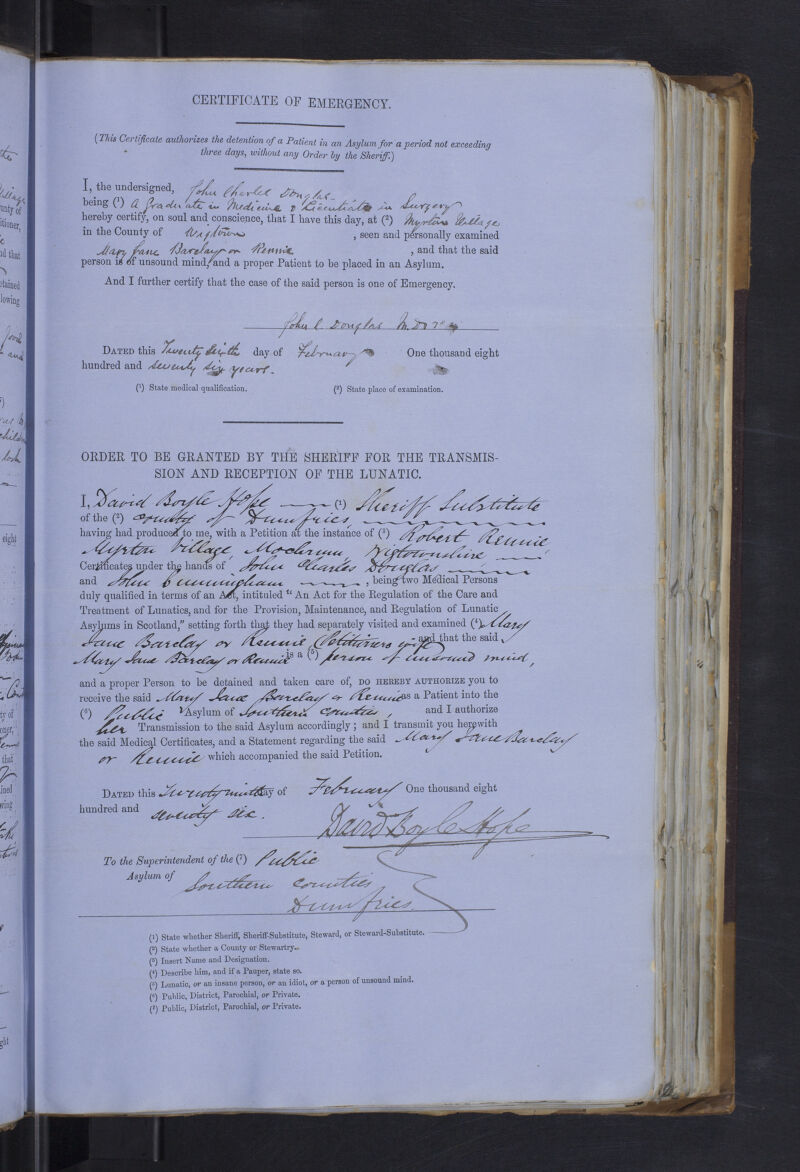 CERTIFICATE OF EMERGENCY.
(This Certificate authorizes the detention of a Patient in an Asylum for a period not exceeding
three days, without any Order by the Sheriff.)
I, the undersigned, John Charles Douglas
being (1) a Graduate in Medicine & Licentiate in Surgery
hereby certify, on soul and conscience, that I have this day, at (2) Myrton Village
in the County of Wigtown , seen and personally examined
Mary Jane Barclay or Rennie , and that the said
person is of unsound mind, and a proper Patient to be placed in an Asylum.
And I further certify that the case of the said person is one of Emergency.
John C Douglas M.D
DATED this Twenty Sixth day of February One thousand eight
hundred and seventy six years.
(1) State medical qualification. (2) State place of examination.
ORDER TO BE GRANTED BY THE SHERIFF FOR THE TRANSMIS-
SION AND RECEPTION OF THE LUNATIC.
I, David Boyle Hope (1) Sheriff Substitute
of the (2) County of Dumfries,
having had produced to me, with a Petition at the instance of (3) Robert Rennie
Myrton Village, Mochrum, Wigtownshire
Certificates under the hands of John Charles Douglas
and John Cunningham , being two Medical Persons
duly qualified in terms of an Act, intituled "An Act for the Regulation of the Care and
Treatment of Lunatics, and for the Provision, Maintenance, and Regulation of Lunatic
Asylums in Scotland," setting forth that they had separately visited and examined (4) Mary
Jane Barclay or Rennie (Petitioners wife) and that the said
Mary Jane Barclay or Rennie is a (5) person of unsound mind,
and a proper Person to be detained and taken care of, DO HEREBY AUTHORIZE you to
receive the said Mary Jane Barclay or Rennie as a Patient into the
(6) Public Asylum of Southern Counties, and I authorize
her Transmission to the said Asylum accordingly; and I transmit you herewith
the said Medical Certificates, and a Statement regarding the said Mary Jane Barclay
or Rennie which accompanied the said Petition.
DATED this Twenty ninth day of February One thousand eight
hundred and seventy six.
David Boyle Hope
To the Superintendent of the (7) Public
Asylum of Southern Counties
Dumfries.
(1) State whether Sheriff, Sheriff-Substitute, Steward, or Steward-Substitute.
(2) State whether a County or Stewartry.
(3) Insert Name and Designation.
(4) Describe him, and if a Pauper, state so.
(5) Lunatic, or an insane person, or an idiot, or a person of unsound mind.
(6) Public, District, Parochial, or Private.
(7) Public, District, Parochial, or Private.